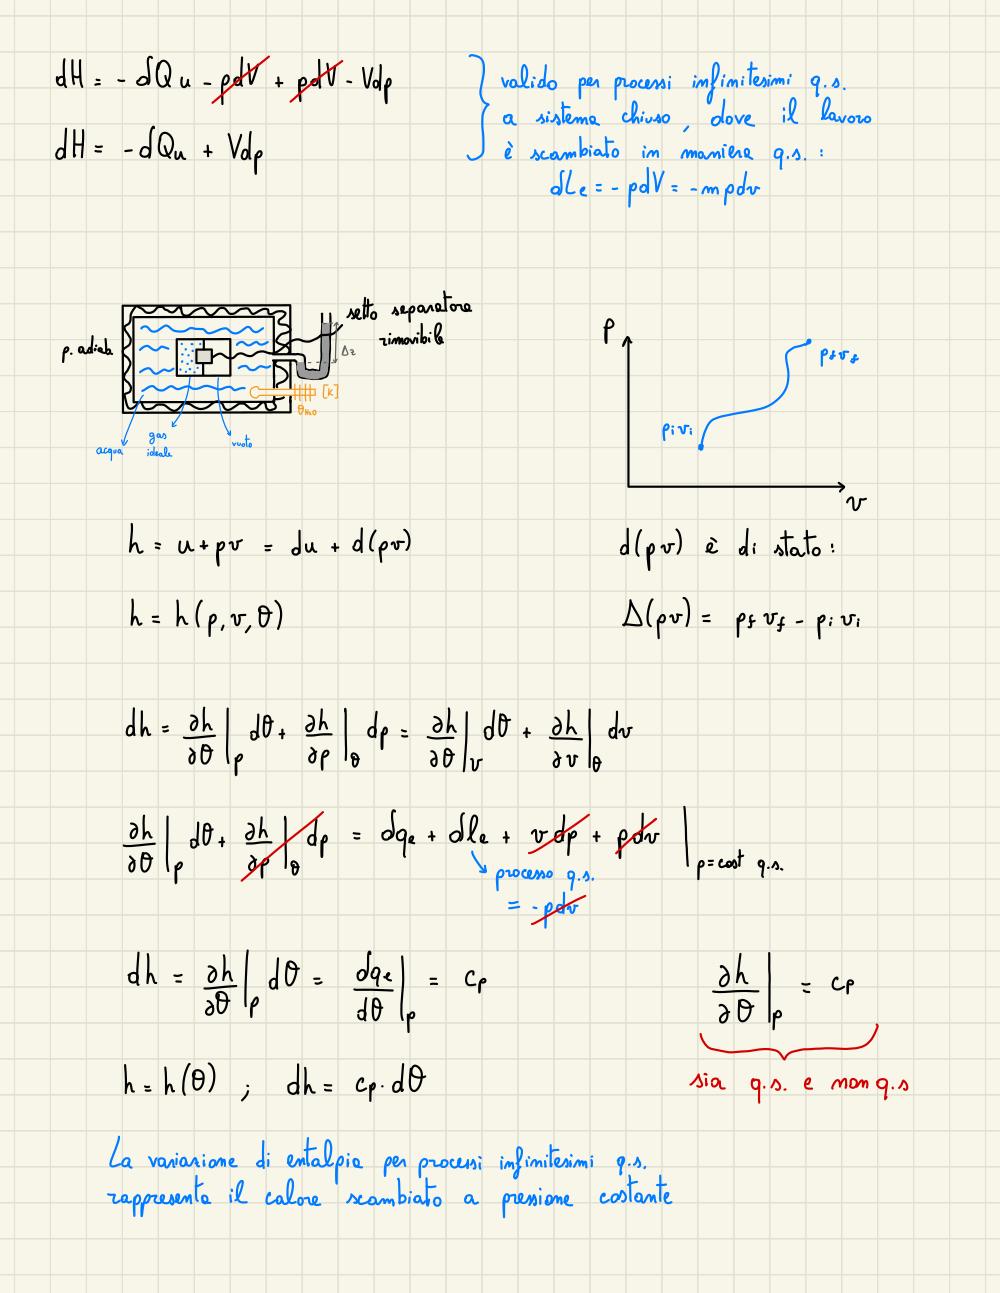 dH = - đQu - pdV + pdV - Vdp
dH = - đQu + Vdp
valido per processi infinitesimi q.s.
a sistema chiuso, dove il lavoro
è scambiato in maniera q.s. :
đLe = - pdV = - mpdv
setto separatore
rimovibile
p. adiab
Δz
[K]
θmo
acqua
gas
ideale
vuoto
p
pf vf
pi vi
v
h = u + pv = du + d(pv)
h = h(p, v, θ)
d(pv) è di stato :
Δ(pv) = pf vf - pi vi
dh = ∂h/∂θ|p dθ + ∂h/∂p|θ dp = ∂h/∂θ|v dθ + ∂h/∂v|θ dv
∂h/∂θ|p dθ + ∂h/∂p|θ dp = đqe + đle + vdp + pdv |p=cost q.s.
processo q.s.
= - pdv
dh = ∂h/∂θ|p dθ = đqe/dθ|p = cp
∂h/∂θ|p = cp
sia q.s. e non q.s
h = h(θ) ; dh = cp · dθ
La variazione di entalpia per processi infinitesimi q.s.
rappresenta il calore scambiato a pressione costante